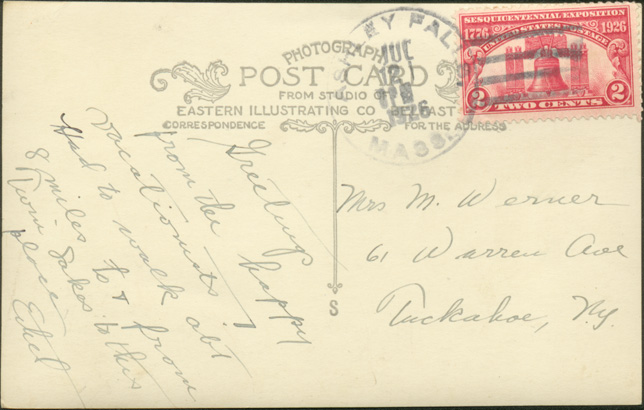 PHOTOGRAPHIC
POST CARD
FROM STUDIO OF
EASTERN ILLUSTRATING CO BELFAST
CORRESPONDENCE
FOR THE ADDRESS
ASHLEY FALLS
AUG
12
1926
MASS.
SESQUICENTENNIAL EXPOSITION
1776 1926
UNITED STATES POSTAGE
2 TWO CENTS 2
Greetings
from the happy
vacationists
Had to walk abt
8 miles to & from
Twin Lakes to this
place
Ethel
Mrs M. Werner
61 Warren Ave
Tuckahoe, N.Y.
S